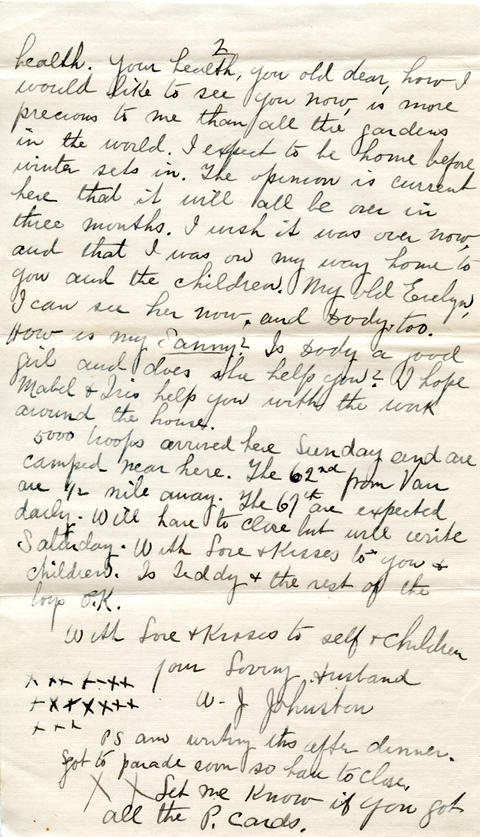 2
health. Your health, you old dear, how I
would like to see you now, is more
precious to me than all the gardens
in the world. I expect to be home before
winter sets in. The opinion is current
here that it will all be over in
three months. I wish it was over now,
and that I was on my way home to
you and the children. My old Evelyn,
I can see her now, and Dody, too.
How is my Fanny? Is Dody a good
girl and does she help you? I hope
Mabel & Iris help you with the work
around the house.
5000 troops arrived here Sunday and are
camped near here. The 62nd from Van
are 1/2 mile away. The 67th are expected
daily. Will have to close but will write
Saturday. With Love & Kisses to you &
children. Is Teddy & the rest of the
boys O.K.
With Love & Kisses to self & children
your Loving Husband
x xx x-xx
W. J Johnston
xxxxxxx
x xx
PS am writing this after dinner.
Got to parade soon so have to close.
X X Let me know if you got
all the P. Cards.